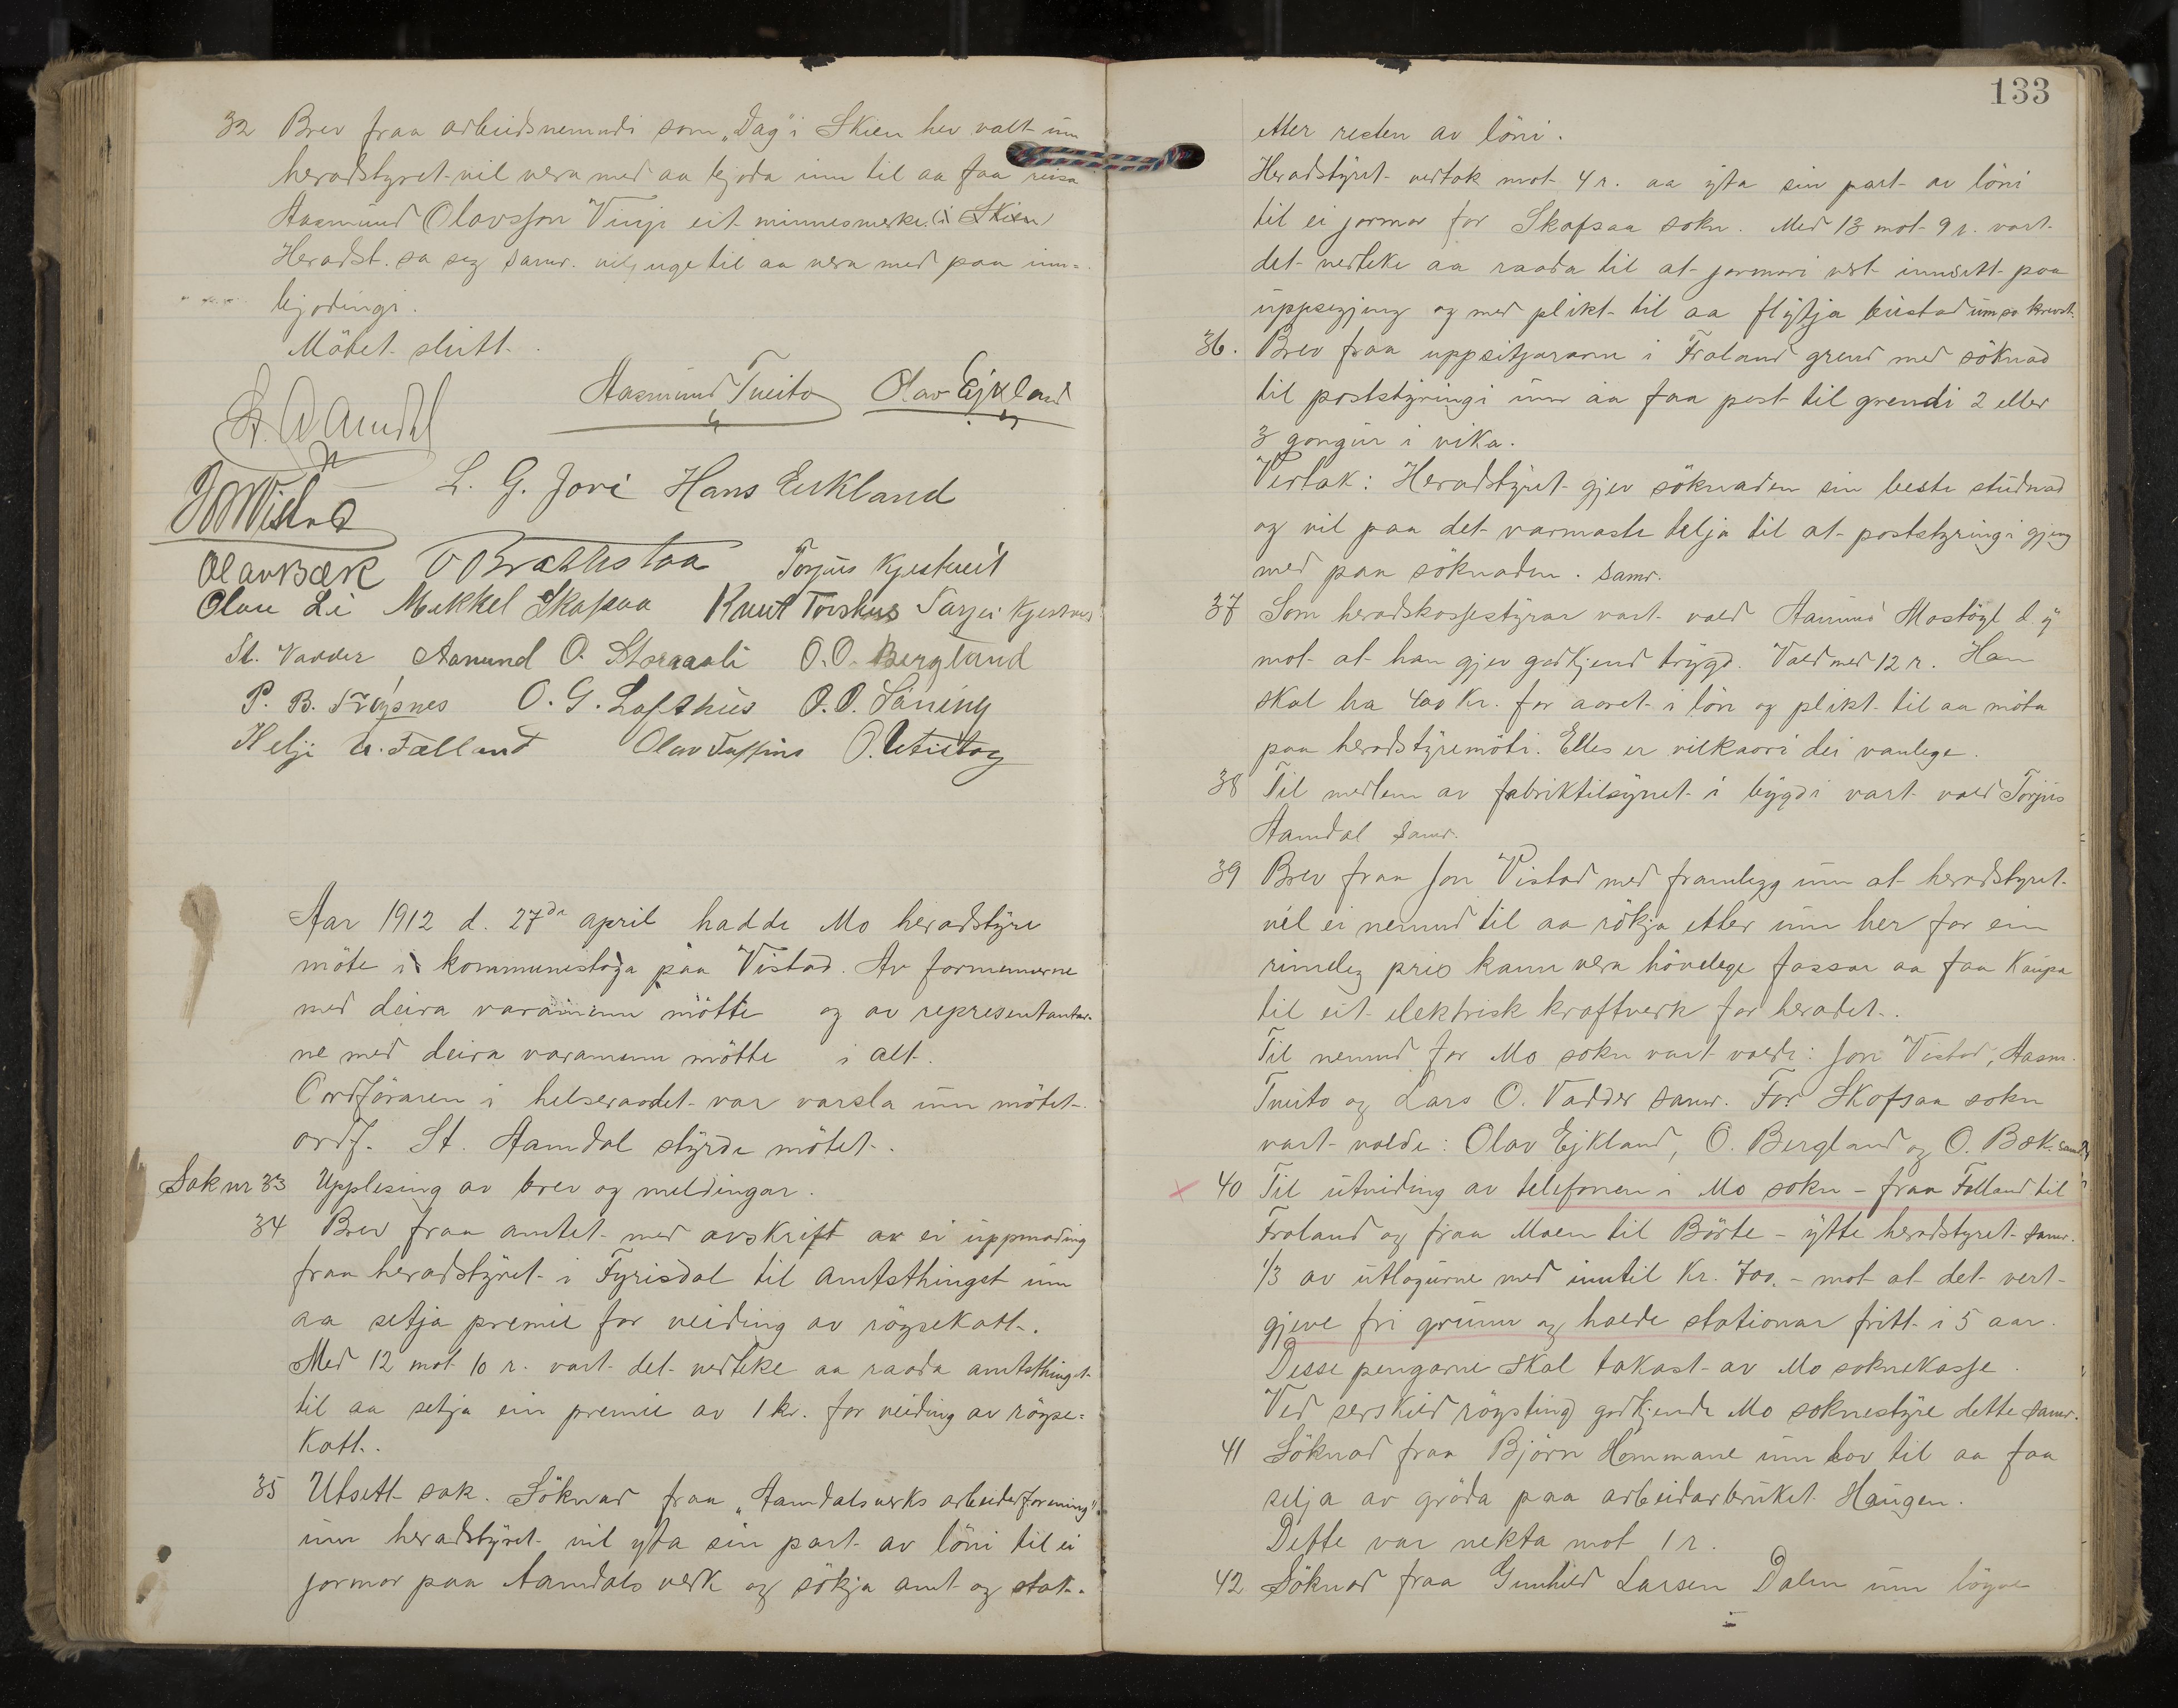 32 Brev fraa arbeidsnemndi som „Dag" i Skien hev valt um
heradstyret vil vera med aa bjoda inn til aa faa reisa
Aasmund Olavsson Vinje eit minnesmerke (i Skien)
Heradst. sa seg samr. viljuge til aa vera med paa inn=
bjodingi.
Mötet slutt.
St. Aamdal
Aasmund Tveito Olav Ejkland
J Vistad
L. G. Jore Hans Eikland
Olav Bæk O Brattestaa Torjus Kjestveit
Olav Li Mikkel Skafsaa Knut Torshus Tarjei Kjestveit
St. Vadder Aanund O. Storaali O. O. Bergland
P. B. Fröysnes O. G. Lofthus O. O. Böning
Helje U. Fælland Olav
Aar 1912 d. 27de april hadde Mo heradstyre
möte i kommunestoga paa Vistad. Av formennerne
med deira varamenn mötte og av representantar-
ne med deira varamenn mötte i alt.
Ordföraren i helseraadet var varsla um mötet.
ordf. St. Aamdal styrde mötet.
Sak nr 33 Upplesing av brev og meldingar.
34 Brev fraa amtet med avskrift av ei uppmoding
fraa heradstyret i Fyrisdal til amtsthinget um
aa setja premie for veiding av röysekatt.
Med 12 mot 10 r. vart det vedteke aa raada amtsthinget
til aa setja ein premie av 1 kr. for veiding av röyse=
katt.
35 Utsett sak. Söknad fraa „Aamdalsverks arbeidarforening"
um heradstyret vil yta sin part av löni til ei
jormor paa Aamdals verk og sökja amt og stat
133
etter resten av löni.
Heradstyret vedtok mot 4 r. aa yta sin part av löni
til ei jormor for Skafsaa sokn. Med 13 mot 9 r. vart
det vedteke aa raada til at jormori vert innsett paa
uppsegjing og med plikt til aa flytja bustad um so krevst.
36. Brev fraa uppsitjarann i Froland grend med söknad
til poststyringi um aa faa post til grendi 2 eller
3 gongur i vika.
Vedtak: Heradstyret gjev söknaden sin beste studnad
og vil paa det varmaste telja til at poststyringi gjeng
med paa söknaden. Samr.
37 Som heradskassestyrar vart vald Aanund Mostögl d. y
mot at han gjev godkjend trygd. Vald med 12 r. Han
skal ha 400 kr. for aaret i lön og plikt til aa möta
paa heradstyremöti. Elles er vilkaari dei vanlege.
38 Til medlem av fabriktilsynet i bygdi vart vald Torjus
Aamdal samr.
39 Brev fraa Jon Vistad med framlegg um at heradstyret
vel ei nemnd til aa rökja etter um her for ein
rimeleg pris kann vera hövelege fossar aa faa kaupa
til eit elektrisk kraftverk for heradet.
Til nemnd for Mo sokn vart valde: Jon Vistad, Aasm.
Tveito og Lars O. Vadder samr. For Skafsaa sokn
vart valde: Olav Ejkland, O. Bergland og O. Bæk. samr.
40 Til utviding av telefonen i Mo sokn – fraa Fælland til
Froland og fraa Moen til Börte – ytte heradstyret samr.
1/3 av utlogurne med inntil kr. 700. – mot at det vert
gjeve fri grunn og halde stationar fritt i 5 aar.
Desse pengarne skal takast av Mo soknekasse.
Ved serskild röysting godkjende Mo soknestyre dette samr.
41 Söknad fraa Björn Hommane um lov til aa faa
selja av gröda paa arbeidarbruket Haugen.
Dette var nekta mot 1 r.
42 Söknad fraa Gunhild Larsen Dalen um löyve